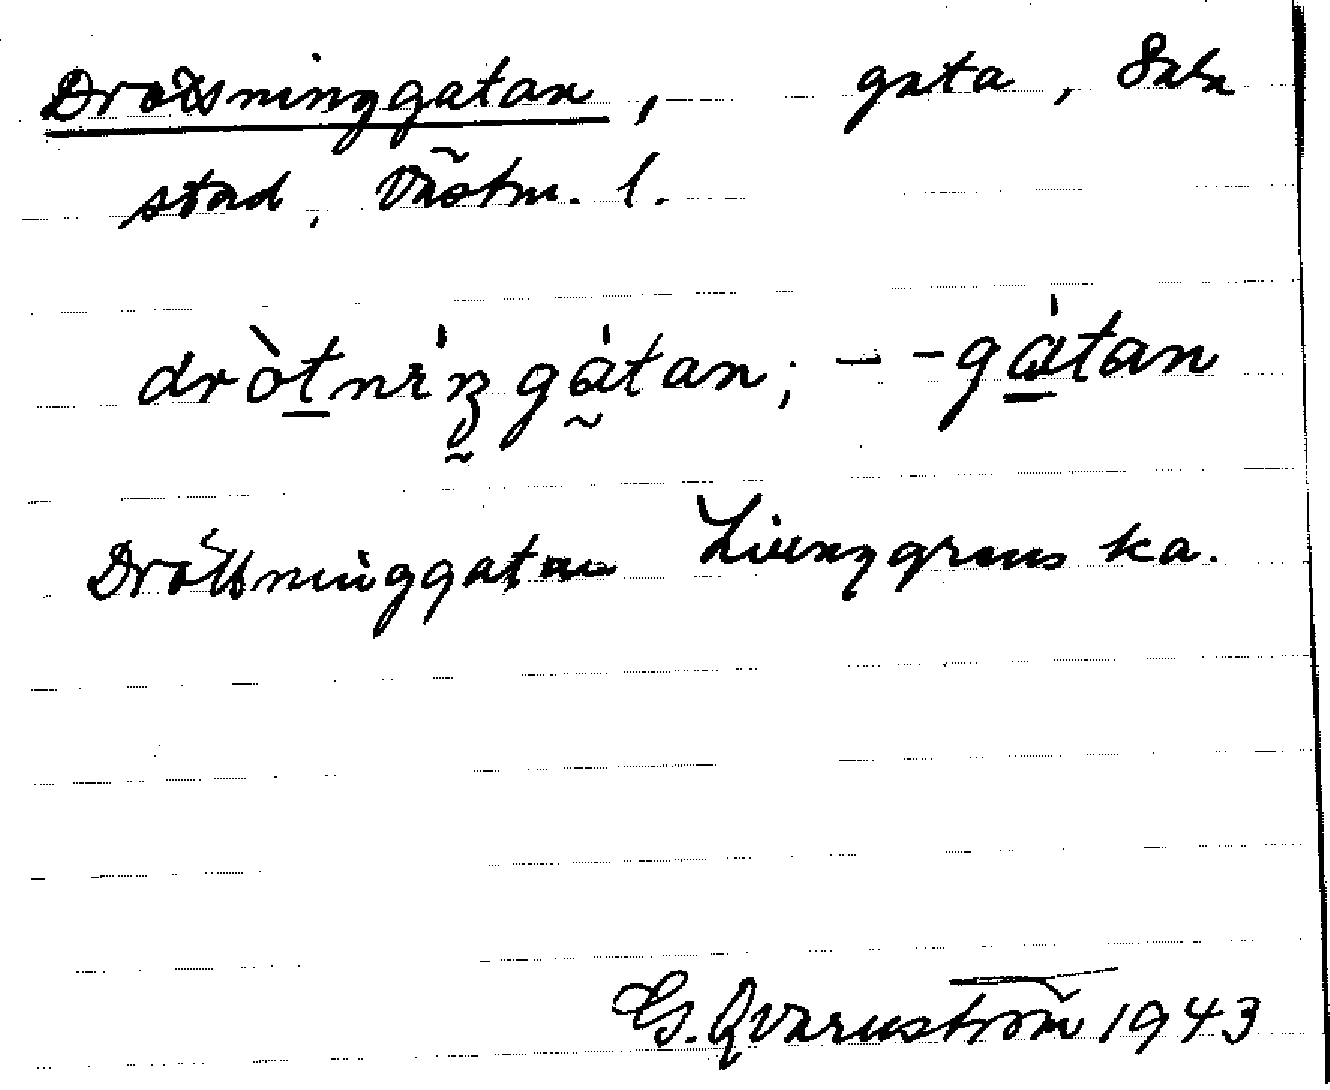 Drottninggatan, gata, Sala
stad, Västm. l.
dròtnìŋgátan; – -gátan
Drottninggatan ka.
G. Qvarnström 1943